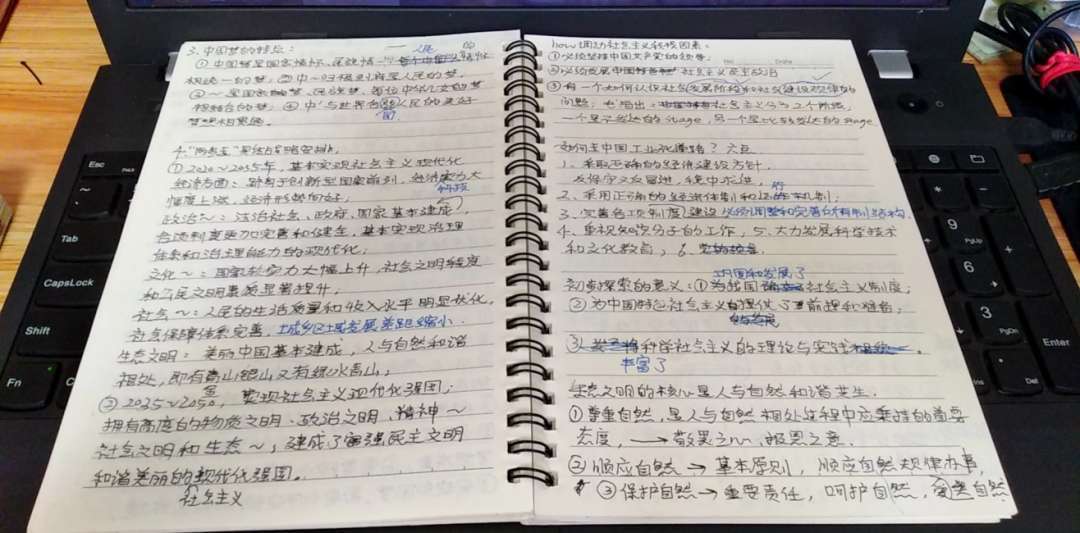 3. 中国梦的特点：
一 人 的
① 中国梦是国家情怀、民族情
极统一的梦；② 中～归根到底是人民的梦。
③ ～是国家的梦、民族梦、每位中华儿女的梦
相结合的梦；④ 中～与世界各国人民的美好
梦想相

4. "两步走"
① 2020～2035年，基本实现社会主义现代化
经济方面：跻身于创新型国家前列，经济实力大
科技
幅度上升，经济形势向好。
政治～：法治社会、政府，国家基本建成，
各项制度更加完善和健全，基本实现治理
体系和治理能力的现代化；
文化～：国家软实力大幅上升，社会文明程度
和公民文明素质显著提升。
社会～：人民的生活质量和收入水平明显优化，
社会保障体系完善，城乡区域发展差距缩小．
生态文明：美丽中国基本建成，人与自然和谐
相处，即有青山银山又有绿水青山；
金
② 2035～2050，实现社会主义现代化强国；
拥有高度的物质文明、政治文明、精神～
社会文明和生态～，建成了富强民主文明
和谐美丽的现代化强国。
社会主义
how 调动社会主义积极因素：
① 必须坚持中国共产党的领导；
② 必须发展社会主义民主政治
③ 有一个如何认识社会发展阶段和社会建设规律的
问题；也指出：社会主义分为2个阶段，
一个是不发达的stage，另一个是比较发达的stage

如何走中国工业化道路？六点
1、采取正确的经济建设方针．
反保守又反冒进，稳中求进，
行
2、采用正确的经济体制和运机制；
3、完善各项制度建设 必须调整和完善所有制结构．
4、重视知识分子的工作，5、大力发展科学技术
和文化教育，6、

巩固和发展了
初步探索的意义：① 为我国社会主义制度；
② 为中国特色社会主义提供了前提和准备；
③ 科学社会主义的理论与实践
丰富了
生态文明的核心是人与自然和谐共生．
① 尊重自然，是人与自然相处过程中应秉持的重要
态度，→ 敬畏之心、报恩之意．
② 顺应自然 → 基本原则，顺应自然规律办事，
③ 保护自然 → 重要责任，呵护自然，自然
Esc
Tab
CapsLock
Shift
Fn
Ctrl
9
PgUp
6
3
PgDn
Enter